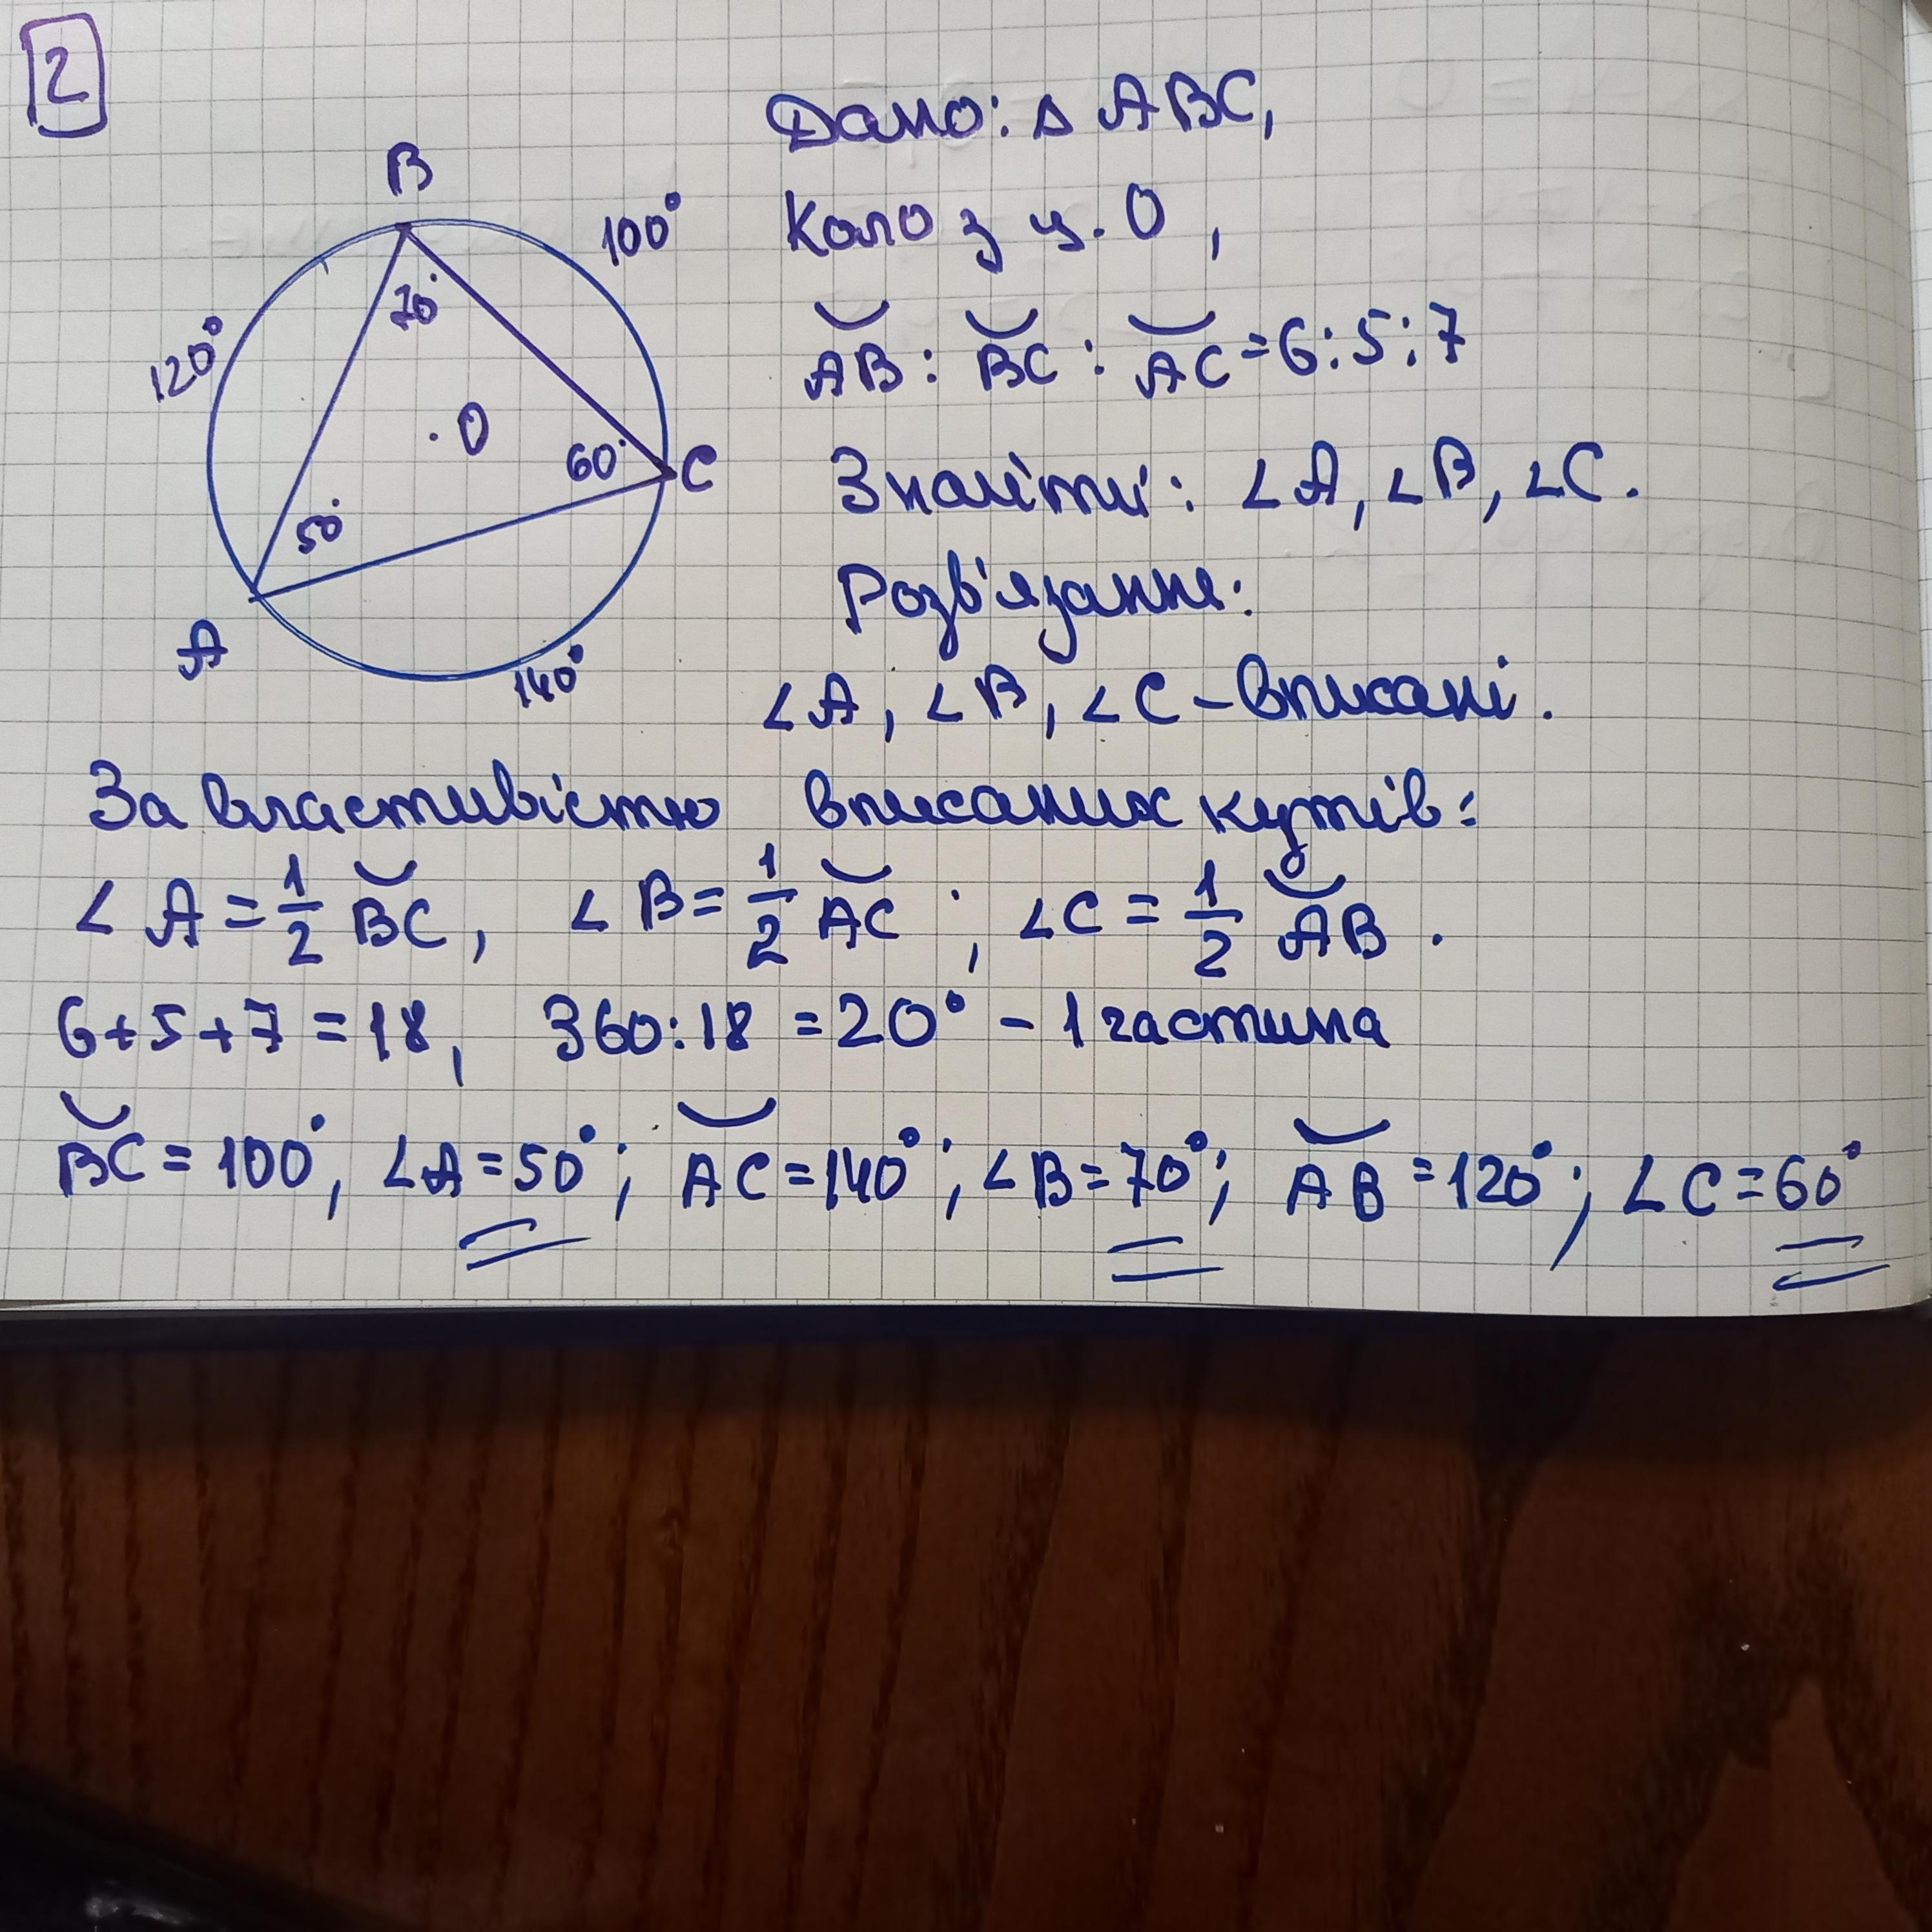 2
B
100°
120°
70°
·O
60°
C
50°
A
140°
Дано: Δ ABC,
Коло з ц. O,
◡AB : ◡BC : ◡AC = 6:5:7
Знайти: ∠A, ∠B, ∠C.
Розв'язання:
∠A, ∠B, ∠C – вписані.
За властивістю вписаних кутів:
∠A = 1/2 ◡BC, ∠B = 1/2 ◡AC; ∠C = 1/2 ◡AB.
6+5+7 = 18, 360:18 = 20° – 1 частина
◡BC = 100°, ∠A = 50°; ◡AC = 140°; ∠B = 70°; ◡AB = 120°; ∠C = 60°